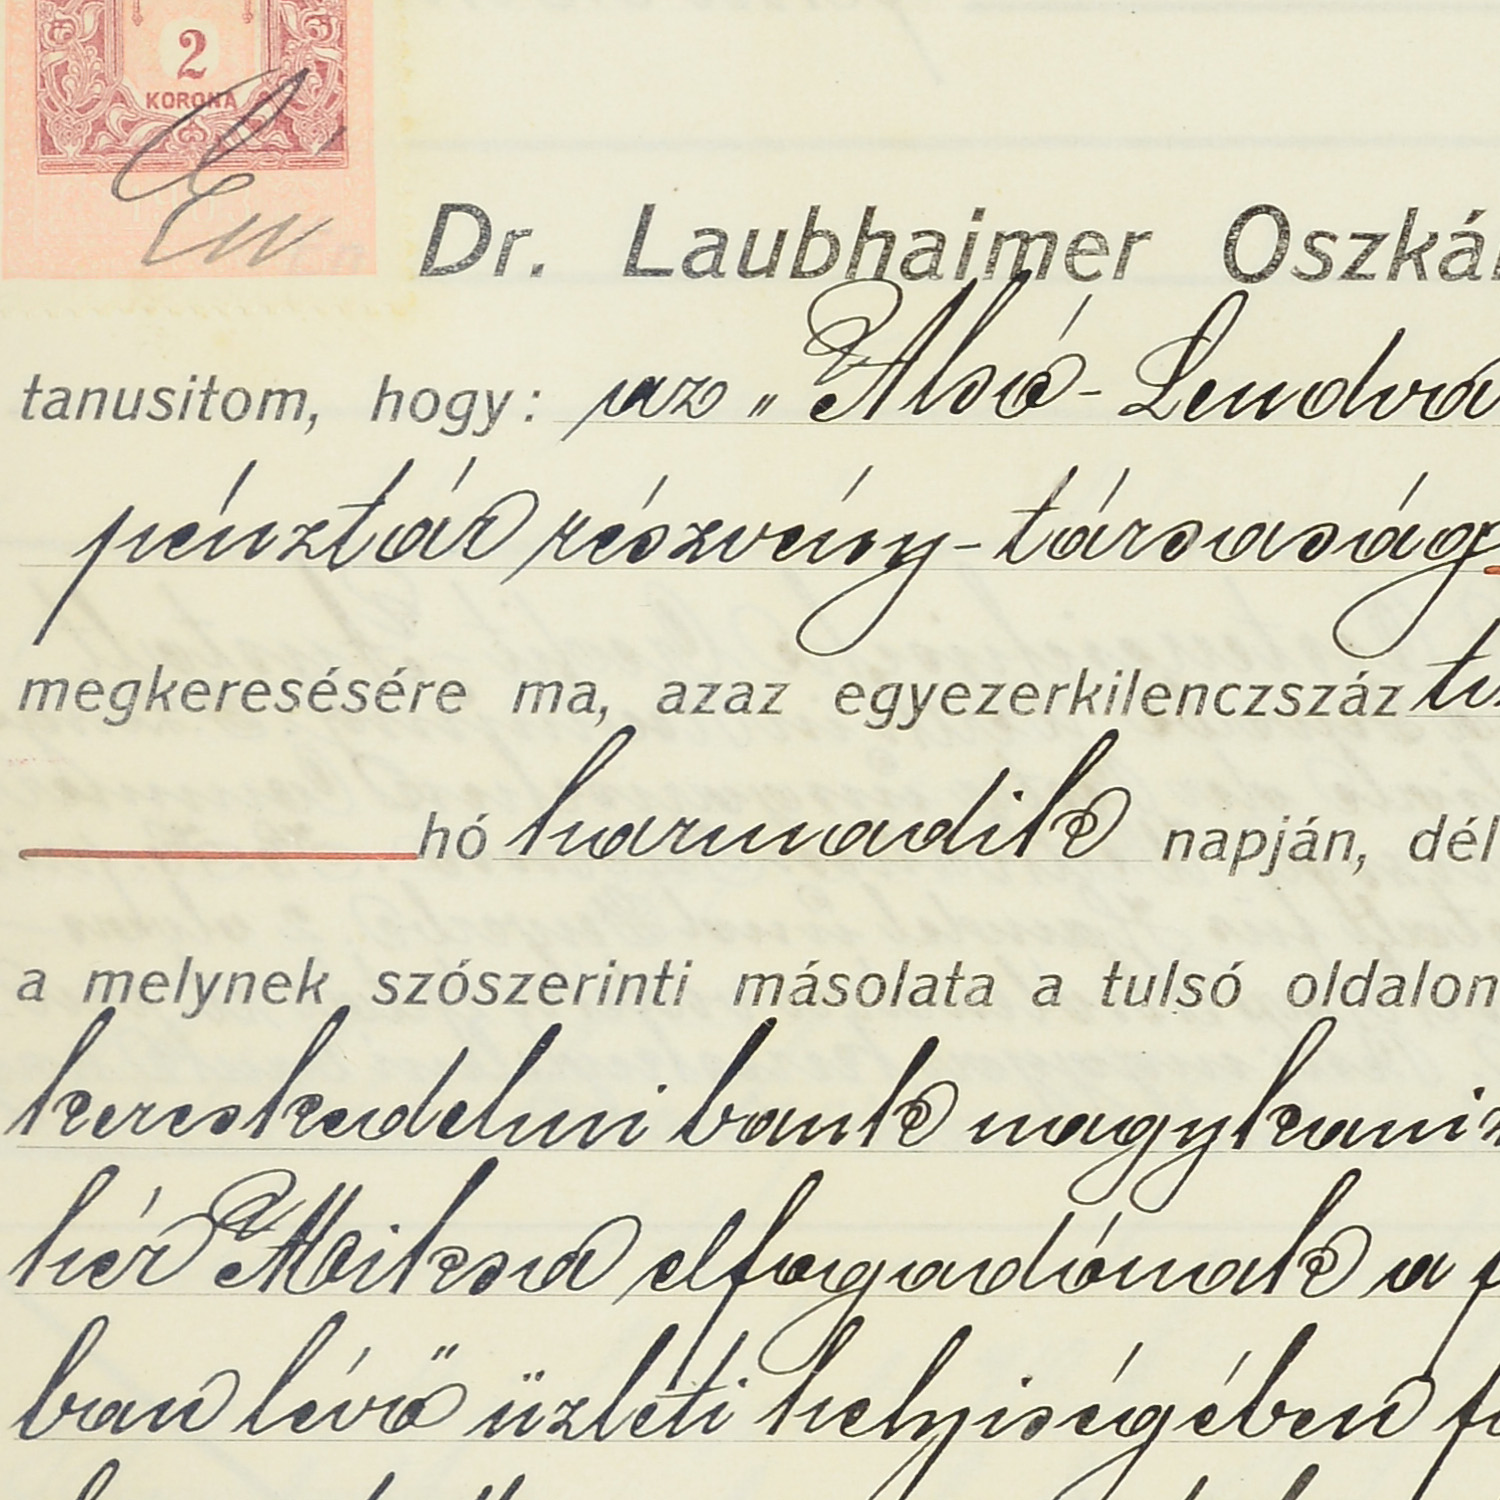 2
KORONA
Dr. Laubhaimer Oszkár
tanusitom, hogy: az „Alsó-Lendva
pénztár részvény-társaság
megkeresésére ma, azaz egyezerkilenczszáz ti
hó harmadik napján, dél
a melynek szószerinti másolata a tulsó oldalon
kereskedelmi bank nagykaniz
hér Miksa elfogadónak a f
ban lévő üzleti helyiségében f